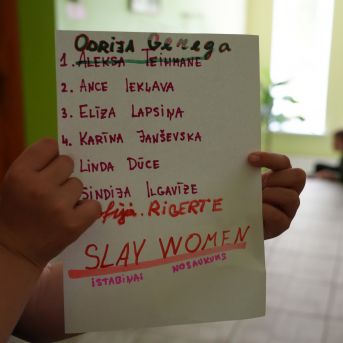 ODRIJA Gerega
1. ALEKSA TEIHMANE
2. ANCE IEKĻAVA
3. ELĪZA LAPSIŅA
4. KARĪNA JANŠEVSKA
LINDA DŪCE
SINDIJA ILGAVĪZE
RIĢERTE
SLAY WOMEN
ISTABIŅAI NOSAUKUMS